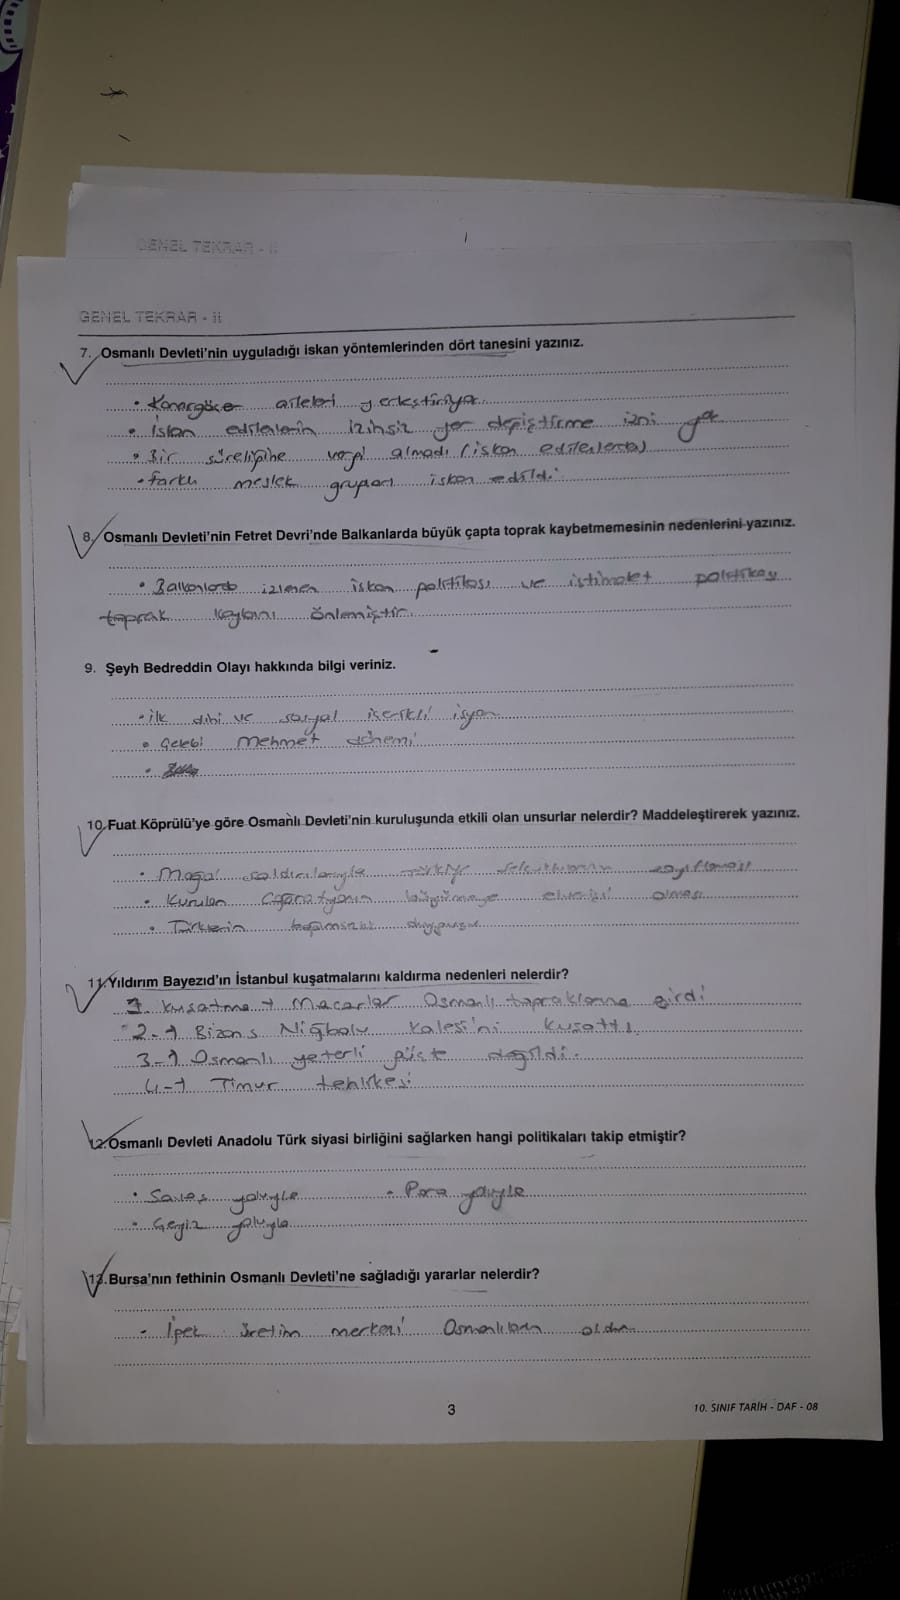 GENEL TEKRAR - II
GENEL TEKRAR - II
7. Osmanlı Devleti'nin uyguladığı iskan yöntemlerinden dört tanesini yazınız.
• Konargöçer aileleri yerleştiriliyor.
• İskan edilenlerin izinsiz yer değiştirme izni yok
• Bir süreliğine vergi almadı (iskan edilenlerden)
• farklı meslek grupları iskan edildi.
8. Osmanlı Devleti'nin Fetret Devri'nde Balkanlarda büyük çapta toprak kaybetmemesinin nedenlerini yazınız.
• Balkanlarda izlenen iskan politikası ve istimalet politikası
toprak kaybını önlemiştir.
9. Şeyh Bedreddin Olayı hakkında bilgi veriniz.
• ilk dini ve sosyal içerikli isyan
• Çelebi Mehmet dönemi
10. Fuat Köprülü'ye göre Osmanlı Devleti'nin kuruluşunda etkili olan unsurlar nelerdir? Maddeleştirerek yazınız.
• Moğol saldırılarıyla Türkiye Selçuklularının zayıflaması
• Kurulan coğrafyanın büyümeye elverişli olması
• Türklerin bağımsızlık duygusu
11. Yıldırım Bayezıd'ın İstanbul kuşatmalarını kaldırma nedenleri nelerdir?
1. kuşatma → Macarlar Osmanlı topraklarına girdi
2-→ Bizans Niğbolu kalesini kuşattı.
3-→ Osmanlı yeterli güçte değildi.
4-→ Timur tehlikesi
12. Osmanlı Devleti Anadolu Türk siyasi birliğini sağlarken hangi politikaları takip etmiştir?
• Savaş yoluyla • Para yoluyla
• Çeyiz yoluyla
13. Bursa'nın fethinin Osmanlı Devleti'ne sağladığı yararlar nelerdir?
• İpek üretim merkezi Osmanlıların oldu.
3
10. SINIF TARİH - DAF - 08